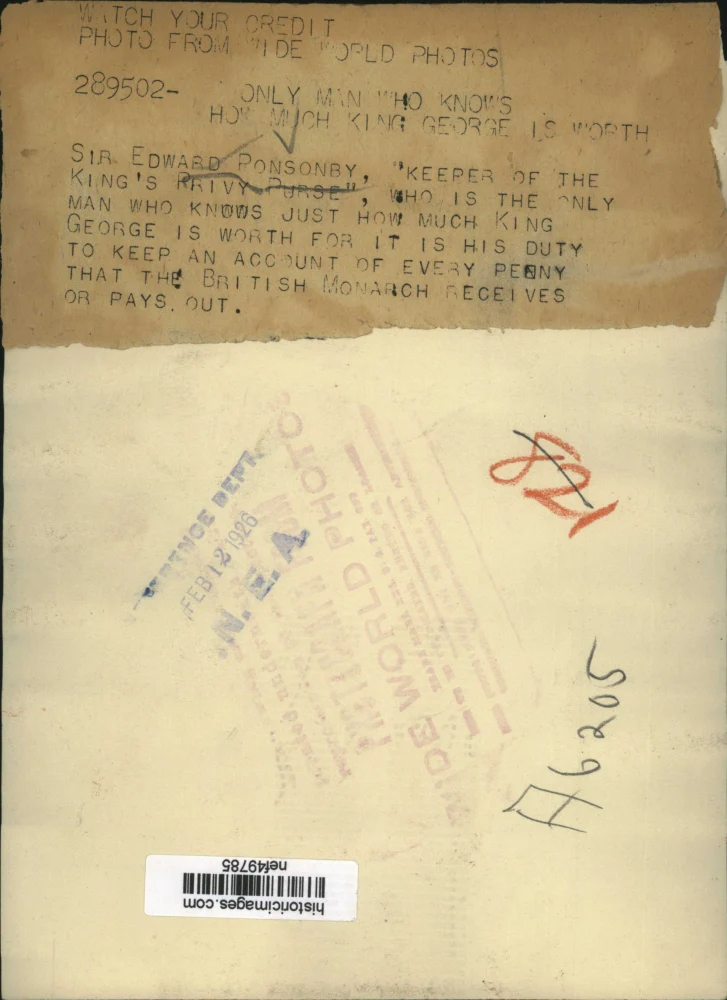 WATCH YOUR CREDIT
PHOTO FROM WIDE WORLD PHOTOS
289502- ONLY MAN WHO KNOWS
HOW MUCH KING GEORGE IS WORTH
SIR EDWARD PONSONBY, "KEEPER OF THE
KING'S PRIVY PURSE", WHO IS THE ONLY
MAN WHO KNOWS JUST HOW MUCH KING
GEORGE IS WORTH FOR IT IS HIS DUTY
TO KEEP AN ACCOUNT OF EVERY PENNY
THAT THE BRITISH MONARCH RECEIVES
OR PAYS. OUT.
821
DEPT.
FEB 12 1926
N. E. A.
WIDE WORLD PHOTOS
A6205
historicimages.com
nef49785